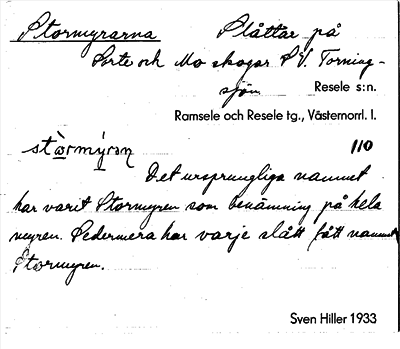 Stormyrarna Slåttar på
Sorte och Mo skogar S.V. Torning-
sjön
Resele s:n.
Ramsele och Resele tg., Västernorrl. l.
110
Det ursprungliga namnet
har varit Stormyren som benämning på hela
myren. Sedermera har varje slått fått namnet
Stormyren.
Sven Hiller 1933